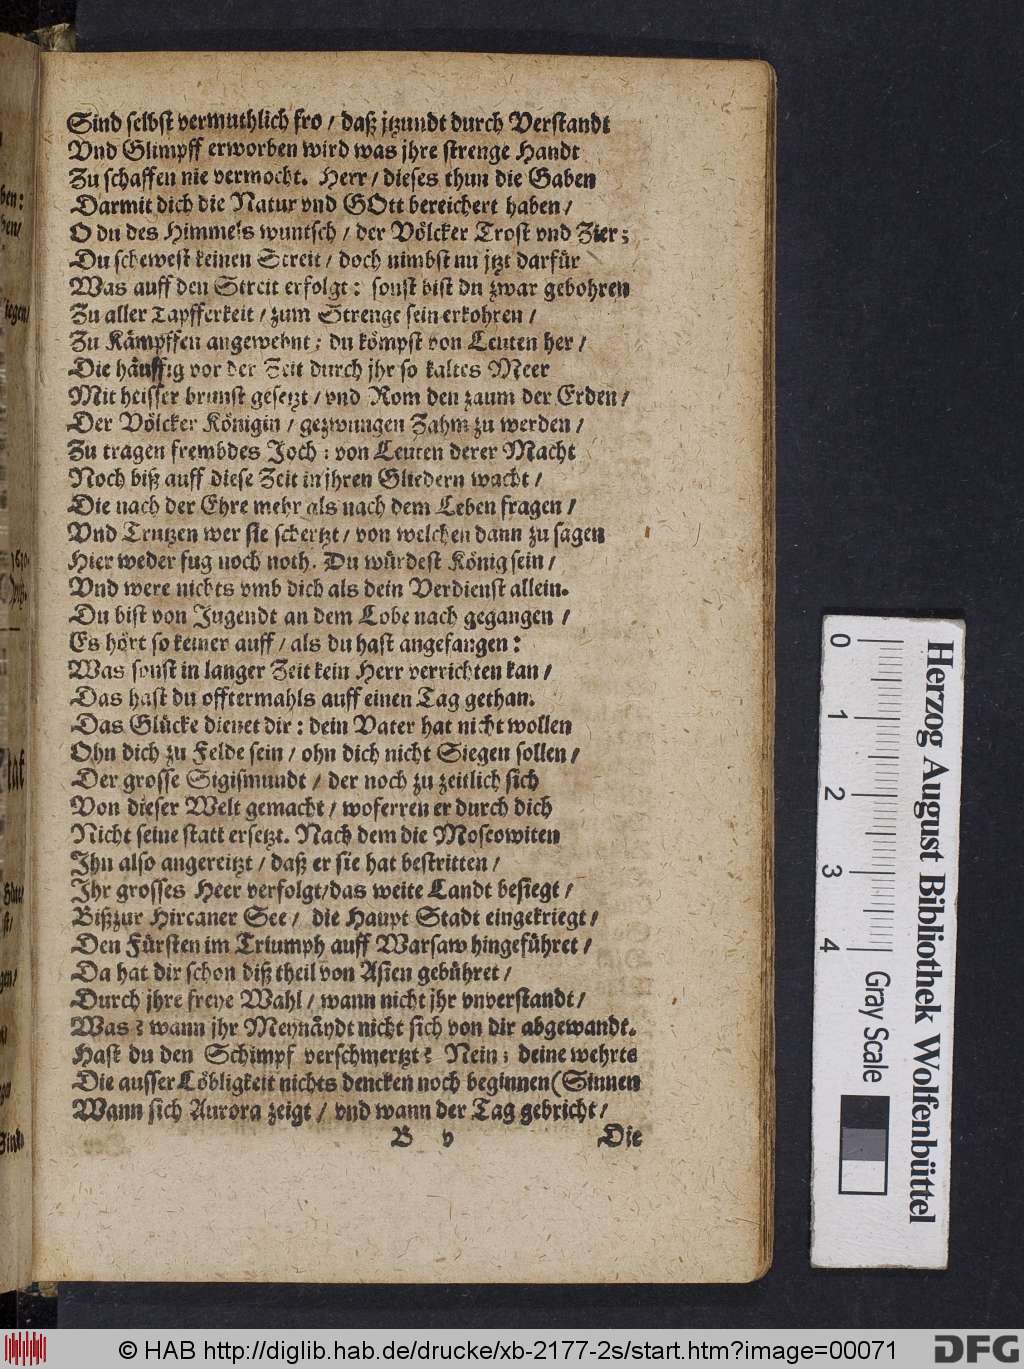 Sind selbst vermuthlich fro / daß jtzundt durch Verstandt
Vnd Glimpff erworben wird was jhre strenge Handt
Zu schaffen nie vermocht. Herr / dieses thun die Gaben
Darmit dich die Natur vnd GOtt bereichert haben /
O du des Himmels wuntsch / der Völcker Trost vnd Zier;
Du schewest keinen Streit / doch nimbst nu jtzt darfür
Was auff den Streit erfolgt: sonst bist du zwar gebohren
Zu aller Tapfferkeit / zum Strenge sein erkohren /
Zu Kämpffen angewehnt; du kömpst von Leuten her /
Die häuffig vor der Zeit durch jhr so kaltes Meer
Mit heisser brunst gesetzt / vnd Rom den zaum der Erden /
Der Völcker Königin / gezwungen Zahm zu werden /
Zu tragen frembdes Joch: von Leuten derer Macht
Noch biß auff diese Zeit in jhren Gliedern wacht /
Die nach der Ehre mehr als nach dem Leben fragen /
Vnd Trutzen wer sie schertzt / von welchen dann zu sagen
Hier weder fug noch noth. Du würdest König sein /
Vnd were nichts vmb dich als dein Verdienst allein.
Du bist von Jugendt an dem Lobe nach gegangen /
Es hört so keiner auff / als du hast angefangen:
Was sonst in langer Zeit kein Herr verrichten kan /
Das hast du offtermahls auff einen Tag gethan.
Das Glücke dienet dir: dein Vater hat nicht wollen
Ohn dich zu Felde sein / ohn dich nicht Siegen sollen /
Der grosse Sigismundt / der noch zu zeitlich sich
Von dieser Welt gemacht / woferren er durch dich
Nicht seine statt ersetzt. Nach dem die Moscowiten
Ihn also angereitzt / daß er sie hat bestritten /
Ihr grosses Heer verfolgt/das weite Landt besiegt /
Biß zur Hircaner See / die Haupt Stadt eingekriegt /
Den Fürsten im Triumph auff Warsaw hingeführet /
Da hat dir schon diß theil von Asien gebühret /
Durch jhre freye Wahl / wann nicht jhr vnverstandt /
Was? wann jhr Meynäydt nicht sich von dir abgewandt.
Hast du den Schimpf verschmertzt? Nein; deine wehrte
Die ausser Löbligkeit nichts dencken noch beginnen (Sinnen
Wann sich Aurora zeigt / vnd wann der Tag gebricht /
B v Die
ben:
Herzog August Bibliothek Wolfenbüttel
0 1 2 3 4 Gray Scale
© HAB http://diglib.hab.de/drucke/xb-2177-2s/start.htm?image=00071
DFG